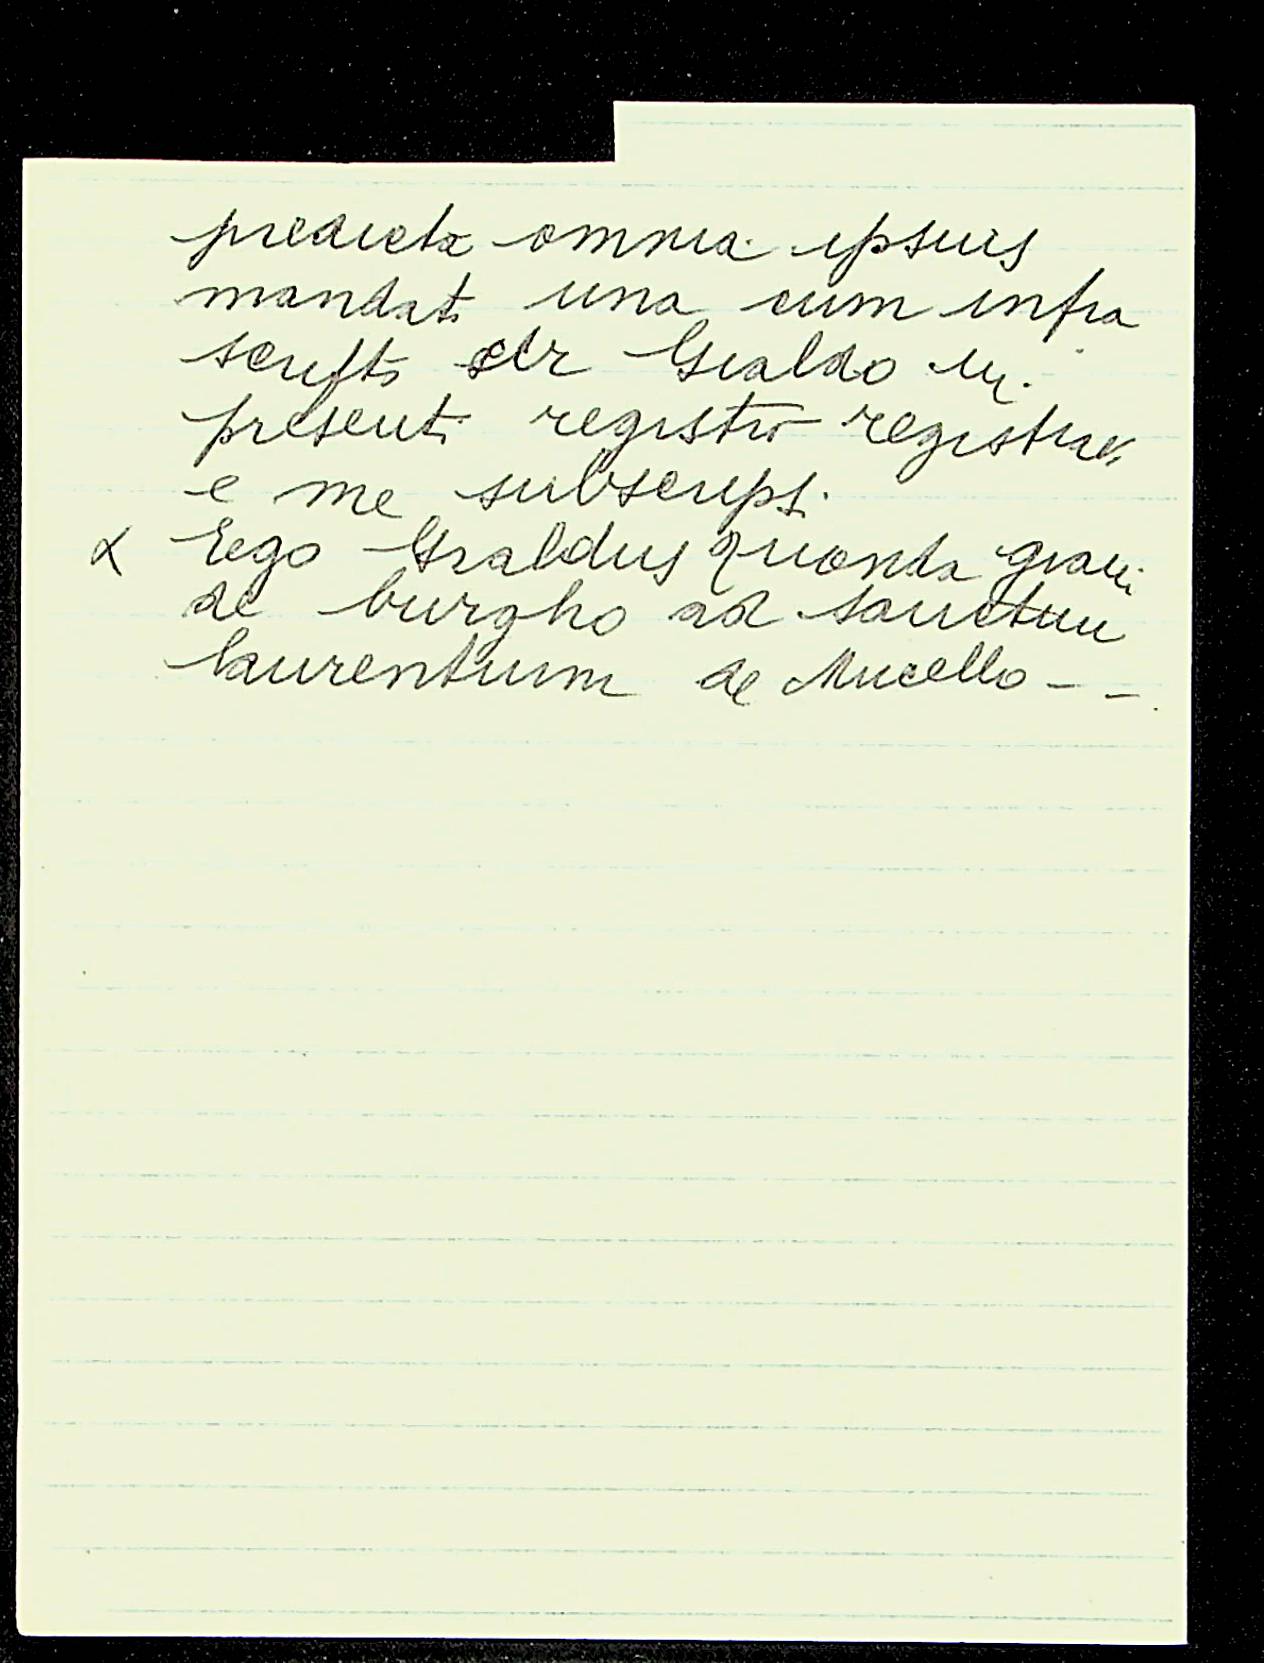 predicta omnia ipsius
mandati una cum infra
scripto ser Gialdo in
presenti registro registravi
e me subscripsi.
Ego Gialdus quonda giani
de burgho ad sanctum
laurentium de Mucello - -